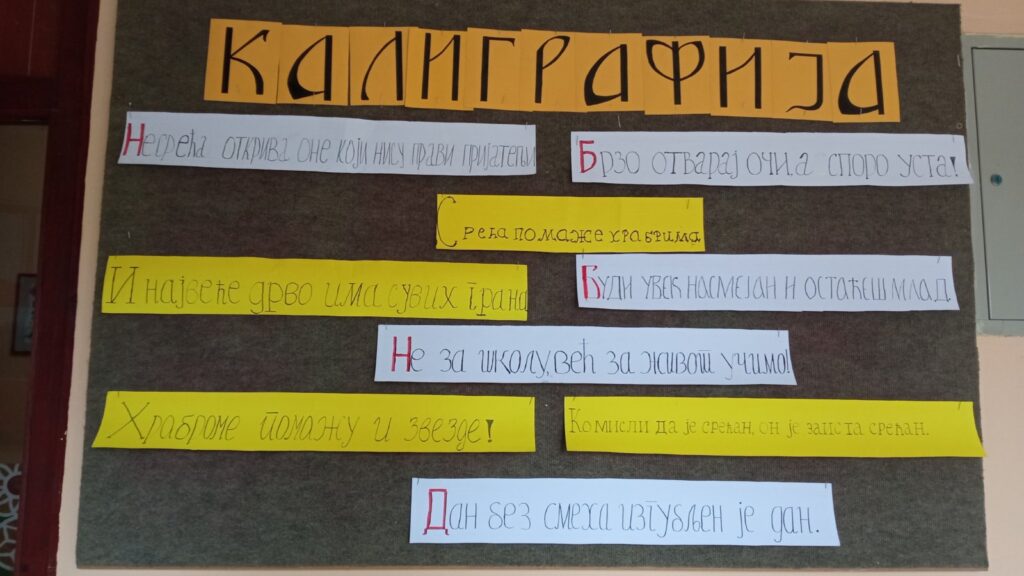 КАЛИГРАФИЈА
Несрећа открива оне који нису прави пријатељи
Брзо отварај очи, а споро уста!
Срећа помаже храбрима
И највеће дрво има сувих грана
Буди увек насмејан и остаћеш млад
Не за школу, већ за живот учимо!
Храброме помажу и звезде!
Ко мисли да је срећан, он је заиста срећан.
Дан без смеха изгубљен је дан.